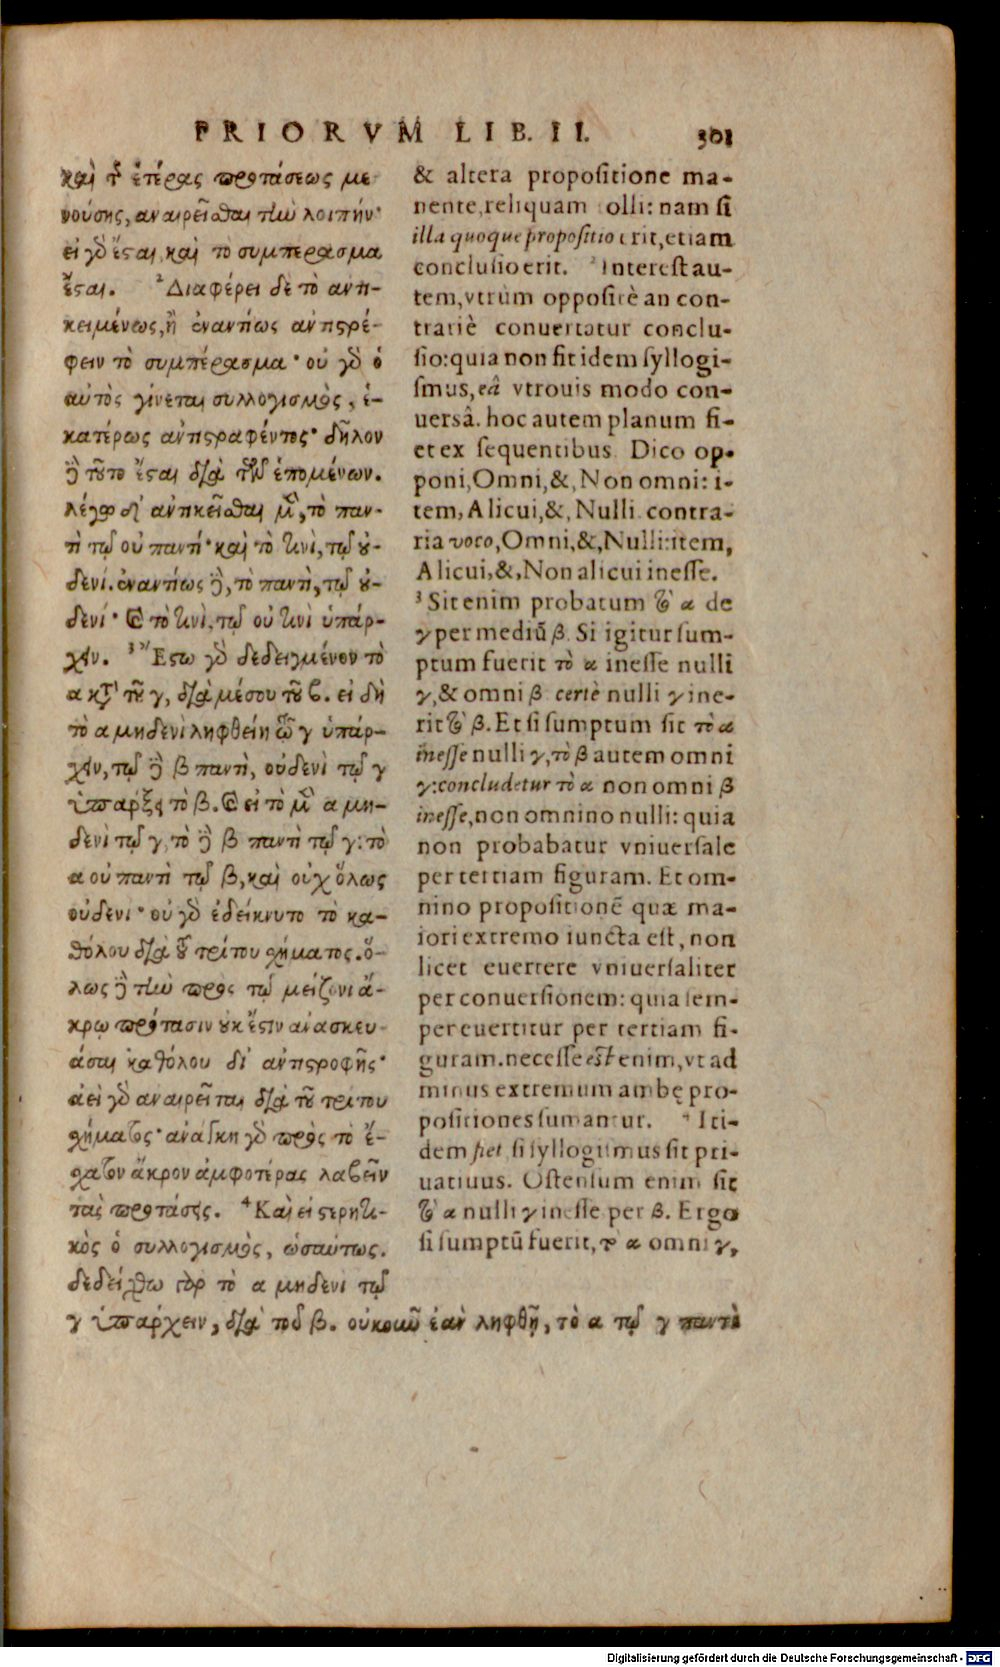 PRIORVM LIB. II. 301
καὶ τῆς ἑτέρας προτάσεως με-
νούσης, ἀναιρεῖσθαι τὴν λοιπήν·
εἰ γὰρ ἔσται, καὶ τὸ συμπέρασμα
ἔσται. ²Διαφέρει δὲ τὸ ἀντι-
κειμένως, ἢ ἐναντίως ἀντιστρέ-
φειν τὸ συμπέρασμα· οὐ γὰρ ὁ
αὐτὸς γίνεται συλλογισμὸς, ἑ-
κατέρως ἀντιστραφέντος· δῆλον
δὲ τοῦτο ἔσται διὰ τῶν ἑπομένων.
λέγω δ' ἀντικεῖσθαι μὲν, τὸ παν-
τὶ τῷ οὐ παντί· καὶ τὸ τινὶ, τῷ οὐ-
δενί. ἐναντίως δὲ, τὸ παντὶ, τῷ οὐ-
δενί· καὶ τὸ τινὶ, τῷ οὐ τινὶ ὑπάρ-
χειν. ³Ἔστω γὰρ δεδειγμένον τὸ
α κατὰ τοῦ γ, διὰ μέσου τοῦ β. εἰ δὴ
τὸ α μηδενὶ ληφθείη τῷ γ ὑπάρ-
χειν, τῷ δὲ β παντὶ, οὐδενὶ τῷ γ
ὑπάρξει τὸ β. καὶ εἰ τὸ μὲν α μη-
δενὶ τῷ γ, τὸ δὲ β παντὶ τῷ γ: τὸ
α οὐ παντὶ τῷ β, καὶ οὐχ ὅλως
οὐδενί· οὐ γὰρ ἐδείκνυτο τὸ κα-
θόλου διὰ τοῦ τρίτου σχήματος. ὅ-
λως δὲ τὴν πρὸς τῷ μείζονι ἄ-
κρῳ πρότασιν οὐκ ἔστιν ἀνασκευ-
άσαι καθόλου δι' ἀντιστροφῆς·
ἀεὶ γὰρ ἀναιρεῖται διὰ τοῦ τρίτου
σχήματος· ἀνάγκη γὰρ πρὸς τὸ ἔ-
σχατον ἄκρον ἀμφοτέρας λαβεῖν
τὰς προτάσεις. ⁴Καὶ εἰ στερητι-
κὸς ὁ συλλογισμὸς, ὡσαύτως.
δεδείχθω γὰρ τὸ α μηδενὶ τῷ
γ ὑπάρχειν, διὰ τοῦ β. οὐκοῦν ἐὰν ληφθῇ, τὸ α τῷ γ παντὶ
& altera propositione ma-
nente, reliquam olli: nam si
illa quoque propositio erit, etiam
conclusio erit. ²Interest au-
tem, vtrùm oppositè an con-
trariè conuertatur conclu-
sio: quia non fit idem syllogi-
smus, eâ vtrouis modo con-
uersâ. hoc autem planum fi-
et ex sequentibus. Dico op-
poni, Omni, &, Non omni: i-
tem, Alicui, &, Nulli. contra-
ria voco, Omni, &, Nulli: item,
Alicui, &, Non alicui inesse.
³Sit enim probatum τὸ α de
γ per mediũ β. Si igitur sum-
ptum fuerit τὸ α inesse nulli
γ, & omni β certè nulli γ ine-
rit τὸ β. Et si sumptum sit τὸ α
inesse nulli γ, τὸ β autem omni
γ: concludetur τὸ α non omni β
inesse, non omnino nulli: quia
non probabatur vniuersale
per tertiam figuram. Et om-
nino propositionẽ quæ ma-
iori extremo iuncta est, non
licet euertere vniuersaliter
per conuersionem: quia sem-
per euertitur per tertiam fi-
guram. necesse est enim, vt ad
minus extremum ambę pro-
positiones sumantur. ⁴Iti-
dem fiet, si syllogismus sit pri-
uatiuus. Ostensum enim sit
τὸ α nulli γ inesse per β. Ergo
si sumptũ fuerit, τὸ α omni γ,
Digitalisierung gefördert durch die Deutsche Forschungsgemeinschaft - DFG